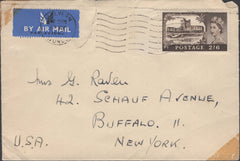 BY AIR MAIL
POSTAGE 2/6
Mrs G. Raven
42. SCHAUF AVENUE,
BUFFALO. 11.
NEW YORK.
U.S.A.